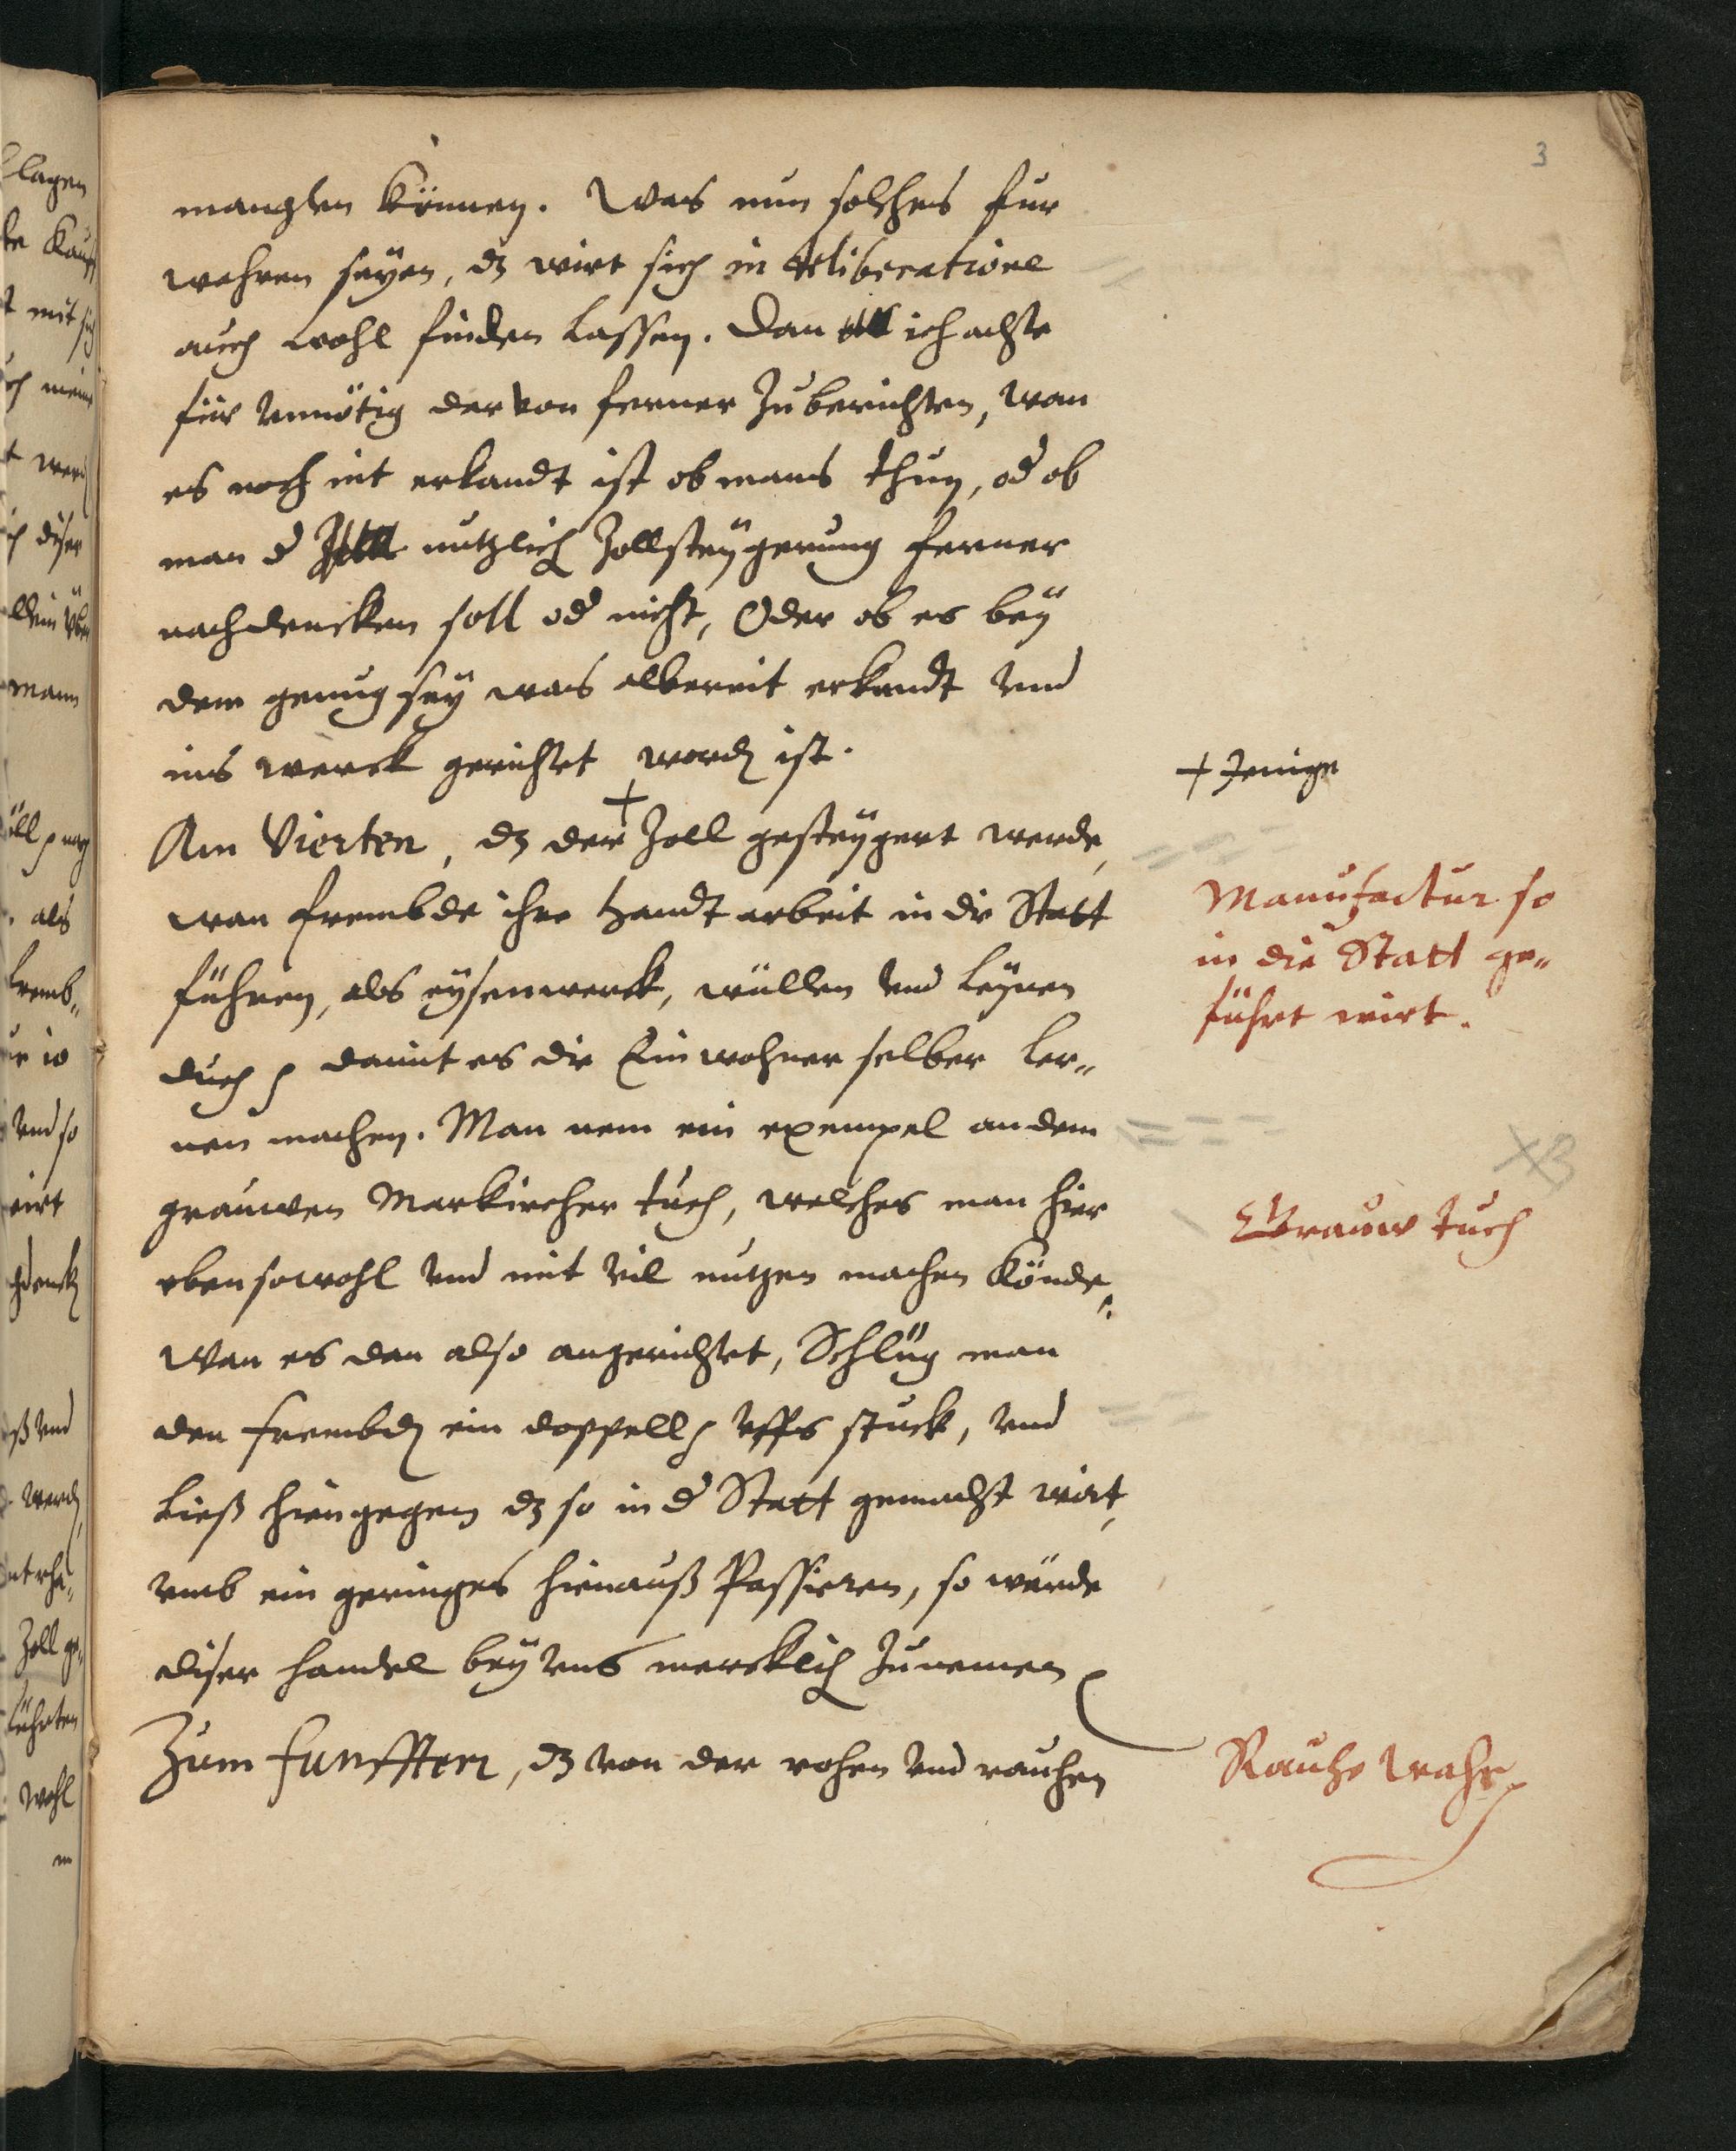 3
manglen können. Was nun solches fur
wahren seyen, dz wirt sich in deliberatione
auch wohl finden lassen. Dan ich achte
für unnötig dervon ferner zuberichten, wan
es noch nit erkandt ist ob mans thun, od ob
man d nutzlich Zollsteygerung ferner
nachdencken soll od nicht, Oder ob es bey
dem genug sey was albereit erkandt vnd
ins werck gerichtet word ist.
+ Jenige
Am Vierten, dz der + Zoll gesteygert werde,
wan frembde ihre handt arbeit in die Statt
führen, als eysenwerck, wüllen vnd leynen
duch damit es die Einwohner selber ler„
nen machen. Man nem ein exempel an dem
grauwen Markircher tuch, welches man hier
eben sowohl vnd mit vil nutzen machen könde,
Wan es dan also angerichtet, Schlüg man
den frembd ein doppell vffs stuck, vnd
ließ hiengegen dz so in d Statt gemacht wirt,
vmb ein geringes hienauß Passieren, so würde
diser handel bey vns mercklich zunemen
Zum funfften, dz von der rohen vnd rauhen
Manufactur so
in die Statt ge„
führt wirt.
Grauw tuch
Rauhe wahr